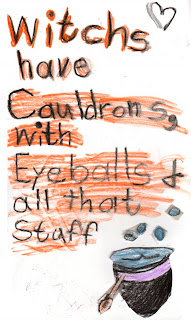 Witchs
have
Cauldrons,
with
Eyeballs &
all that
Staff